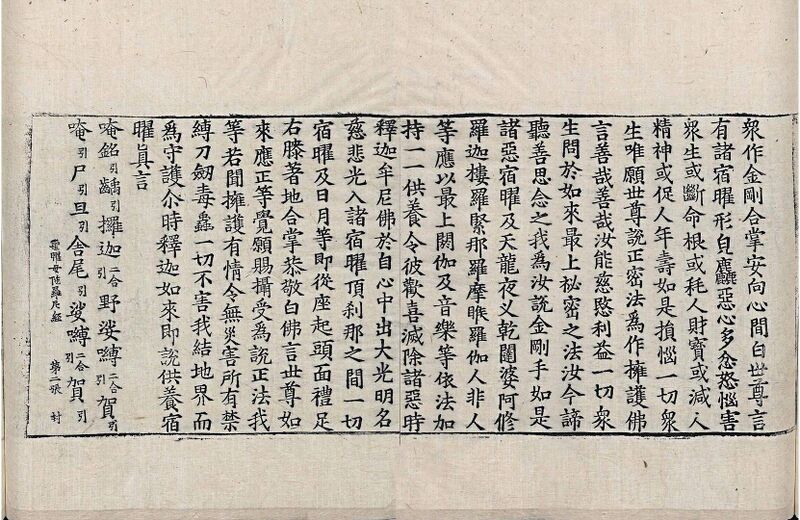 衆作金剛合掌安向心間白世尊言
有諸宿曜形皃麤惡心多忿怒惱害
衆生或斷命根或秏人財寶或減人
精神或促人年壽如是損惱一切衆
生唯願世尊說正密法爲作擁護佛
言善哉善哉汝能慈愍利益一切衆
生問於如來最上祕密之法汝今諦
聽善思念之我爲汝說金剛手如是
諸惡宿曜及天龍夜叉乾闥婆阿修
羅迦樓羅緊那羅摩睺羅伽人非人
等應以最上閼伽及音樂等依法加
持一一供養令彼歡喜滅除諸惡時
釋迦牟尼佛於自心中出大光明名
慈悲光入諸宿曜頂刹那之間一切
宿曜及日月等即從座起頭面禮足
右膝著地合掌恭敬白佛言世尊如
來應正等覺願賜攝受爲說正法我
等若聞擁護有情令無災害所有禁
縛刀劒毒蠱一切不害我結地界而
爲守護尒時釋迦如來即說供養宿
曜眞言
唵銘引齲引攞迦二合野娑嚩二合賀引
唵引尸引旦引舍尾引娑嚩二合賀引
聖曜母陁羅尼經 第二張 封